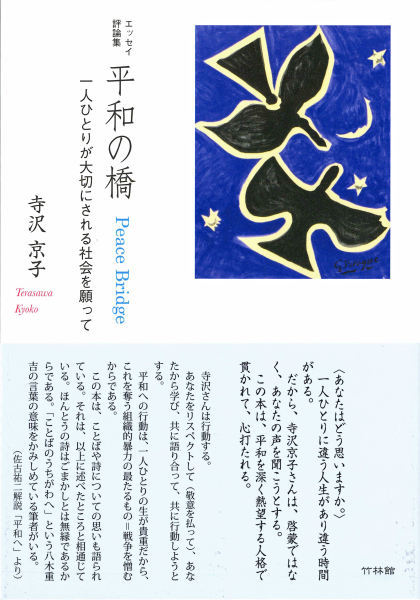 エッセイ
評論集
平和の橋
Peace Bridge
一人ひとりが大切にされる社会を願って
寺沢 京子
Terasawa
Kyoko
〈あなたはどう思いますか。〉
一人ひとりに違う人生があり違う時間
がある。
だから、寺沢京子さんは、啓蒙ではな
く、あなたの声を聞こうとする。
この本は、平和を深く熱望する人格で
貫かれて、心打たれる。
寺沢さんは行動する。
あなたをリスペクトして（敬意を払って）、あな
たから学び、共に語り合って、共に行動しようと
する。
平和への行動は、一人ひとりの生が貴重だから、
これを奪う組織的暴力の最たるもの＝戦争を憎む
からである。
この本は、ことばや詩についての思いも語られ
ている。それは、以上に述べたところと相通じて
いる。ほんとうの詩はごまかしとは無縁であるか
らである。「ことばのうちがわへ」という八木重
吉の言葉の意味をかみしめている筆者がいる。
（佐古祐二解説「平和へ」より）
竹林館